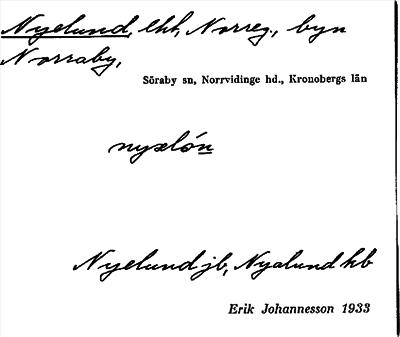 Nyelund, lht, Norreg., byn
Norraby,
Söraby sn, Norrvidinge hd., Kronobergs län
nyxlón
Nyelund jb, Nyalund hb
Erik Johannesson 1933